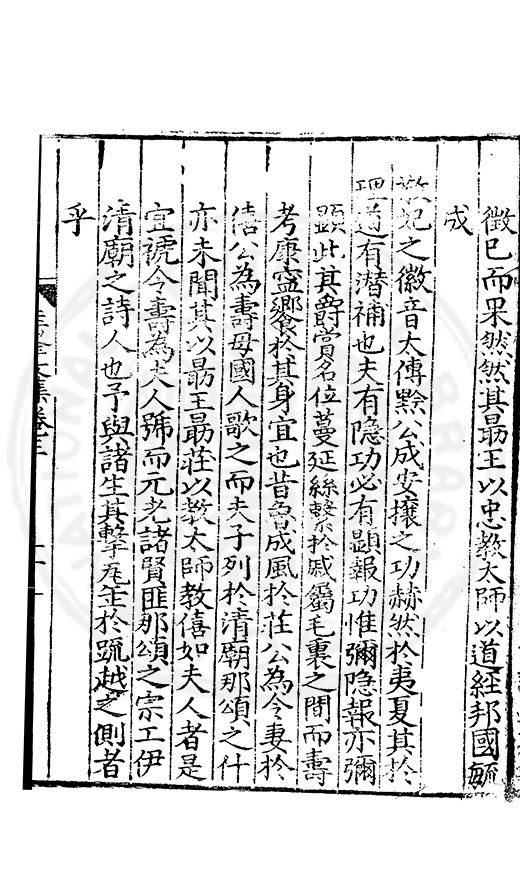 徵已而果然然其勗王以忠教太師以道經邦國毓
成
懿妃之徽音太傅黔公成安攘之功赫然於夷夏其於
理道有潛補也夫有隐功必有顕報功惟彌隐報亦彌
顕此其爵賞名位蔓延絲繫於戚屬毛裏之間而壽
考康寧饗於其身宜也昔魯成風於莊公為令妻於
僖公為壽母國人歌之而夫子列於清廟那頌之什
亦未聞其以勗王勗莊以教太師教僖如夫人者是
宜號令壽為夫人號而元老諸賢匪那頌之宗工伊
清廟之詩人也予與諸生其擊缶於䟽越之側者
乎
文集卷三